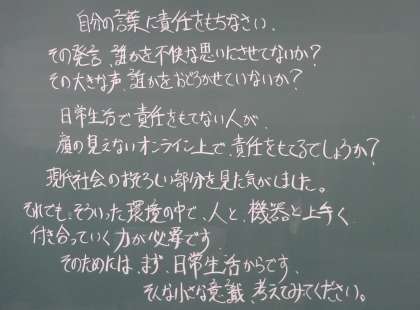 自分の言葉に責任をもちなさい.
その発言、誰かを不快な思いにさせてないか?
その大きな声、誰かをおどろかせていないか?
日常生活で責任をもてない人が、
顔の見えないオンライン上で、責任をもてるでしょうか?
現代社会のおそろしい部分を見た気がしました。
それでも、そういった環境の中で、人と、機器と上手く
付き合っていく力が必要です.
そのためには、まず、日常生活からです.
そんな小さな意識、考えてみてください。